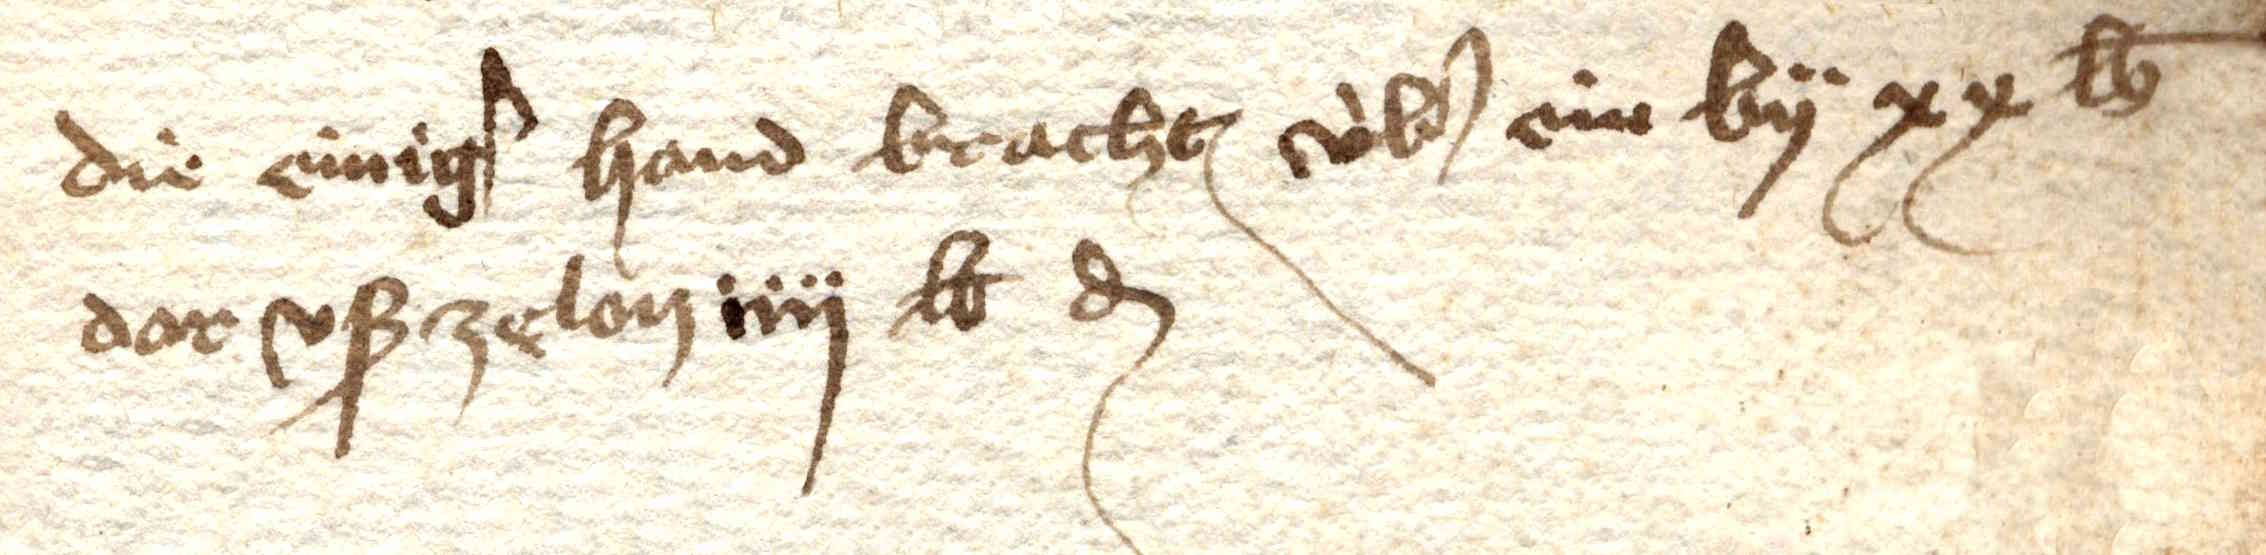 die einiger hand bracht über ein vij xx lb
dar vß ze lon iiij lb d